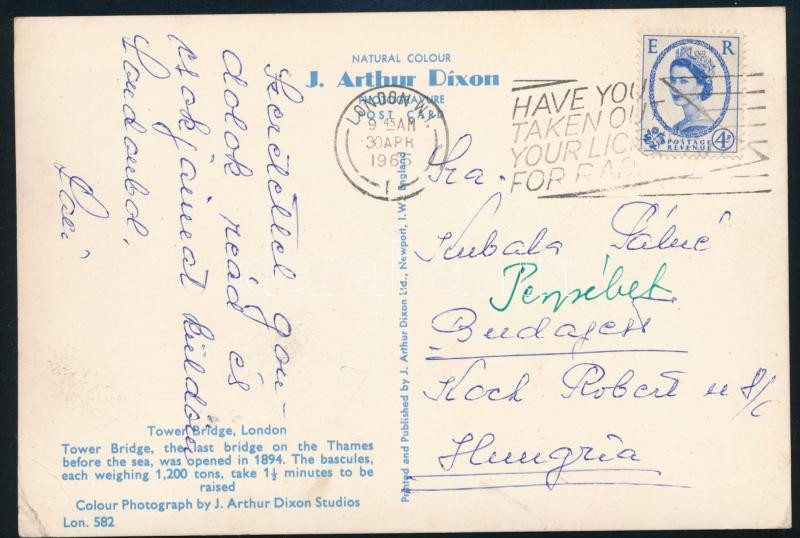 NATURAL COLOUR
J. Arthur Dixon
PHOTOGRAVURE
POST CARD
LONDON. W.
9 45 AM
30 APR
1965
1
HAVE YOU
TAKEN OUT
YOUR LICE
FOR RA
E R
POSTAGE
REVENUE
4D
Szeretettel gon-
dolok reád és
csókjaimat küldöm
Londonból.
Laci
Kubala Pálné
Budapest
Koch Robert u
Hungria
Printed and Published by J. Arthur Dixon Ltd., Newport, I.W., England
Tower Bridge, London
Tower Bridge, the last bridge on the Thames
before the sea, was opened in 1894. The bascules,
each weighing 1,200 tons, take 1½ minutes to be
raised
Colour Photograph by J. Arthur Dixon Studios
Lon. 582
darabanth